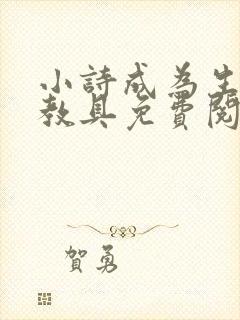 小詩成為生
教具免費閱
賀勇